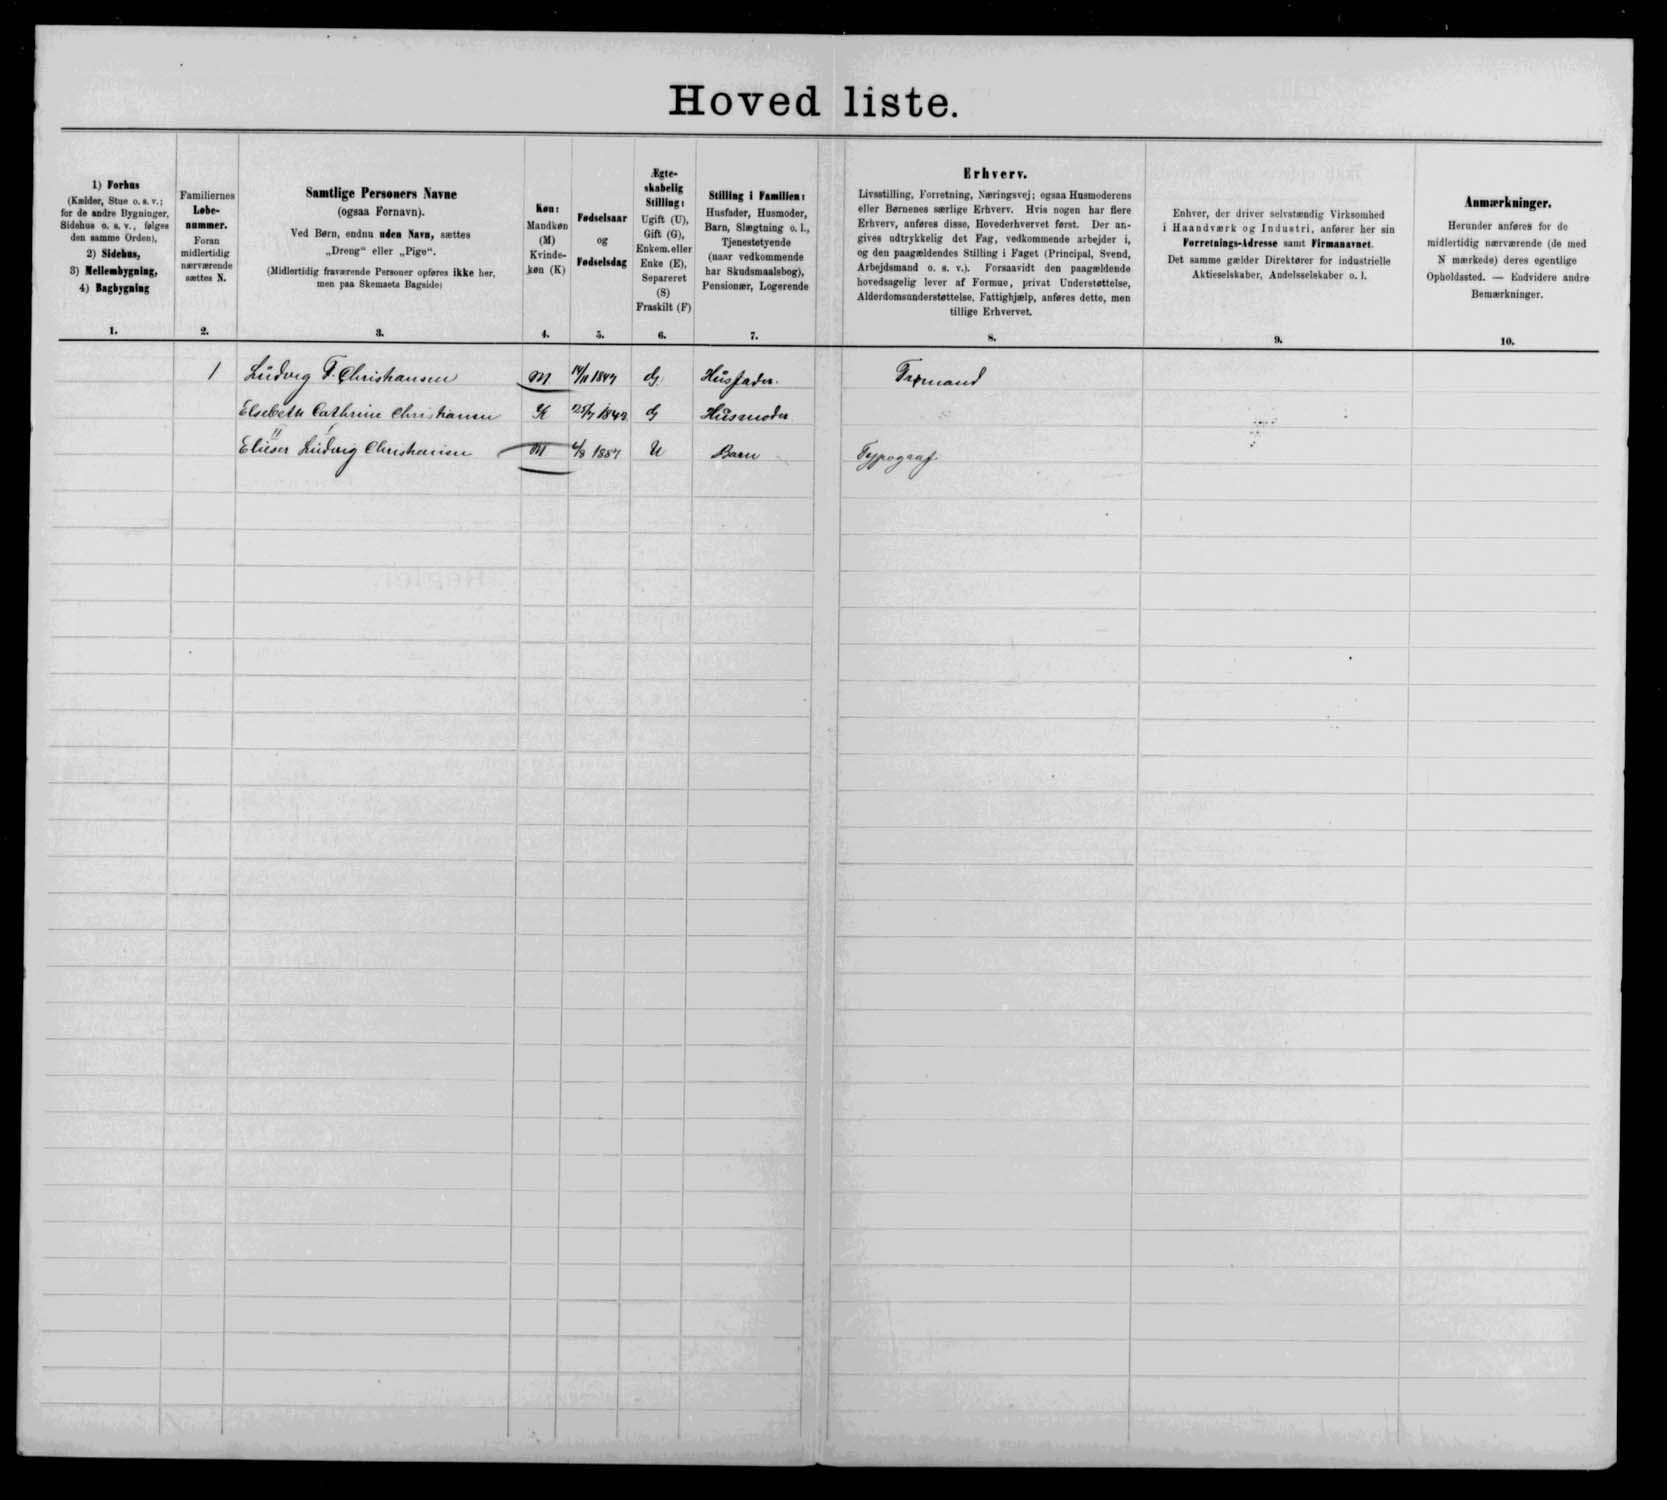 Hoved liste.
1) Forhus
(Kælder, Stue o. s. v.;
for de andre Bygninger,
Sidehus o. s. v., følges
den samme Orden),
2) Sidehus,
3) Mellembygning,
4) Bagbygning
1.
Familiernes
Løbe-
nummer.
Foran
midlertidig
nærværende
sættes N.
2.
Samtlige Personers Navne
(ogsaa Fornavn).
Ved Børn, endnu uden Navn, sættes
„Dreng“ eller „Pige“.
(Midlertidig fraværende Personer opføres ikke her,
men paa Skemaets Bagside)
3.
Køn:
Mandkøn
(M)
Kvinde-
køn (K)
4.
Fødselsaar
og
Fødselsdag
5.
Ægte-
skabelig
Stilling:
Ugift (U),
Gift (G),
Enkem. eller
Enke (E),
Separeret
(S)
Fraskilt (F)
6.
Stilling i Familien:
Husfader, Husmoder,
Barn, Slægtning o. l.,
Tjenestetyende
(naar vedkommende
har Skudsmaalsbog),
Pensionær, Logerende
7.
Erhverv.
Livsstilling, Forretning, Næringsvej; ogsaa Husmoderens
eller Børnenes særlige Erhverv. Hvis nogen har flere
Erhverv, anføres disse, Hovederhvervet først. Der an-
gives udtrykkelig det Fag, vedkommende arbejder i,
og den paagældendes Stilling i Faget (Principal, Svend,
Arbejdsmand o. s. v.). Forsaavidt den paagældende
hovedsagelig lever af Formue, privat Understøttelse,
Alderdomsunderstøttelse, Fattighjælp, anføres dette, men
tillige Erhvervet.
8.
Enhver, der driver selvstændig Virksomhed
i Haandværk og Industri, anfører her sin
Forretnings-Adresse samt Firmanavnet.
Det samme gælder Direktører for industrielle
Aktieselskaber, Andelsselskaber o. l.
9.
Anmærkninger.
Herunder anføres for de
midlertidig nærværende (de med
N mærkede) deres egentlige
Opholdssted. — Endvidere andre
Bemærkninger.
10.
1 Ludvig F. Christiansen M 14/11 1847 G. Husfader.
Elsebeth Cathrine Christiansen K G Husmoder.
Elieser Ludvig Christiansen M 1887 U Barn Typograf.